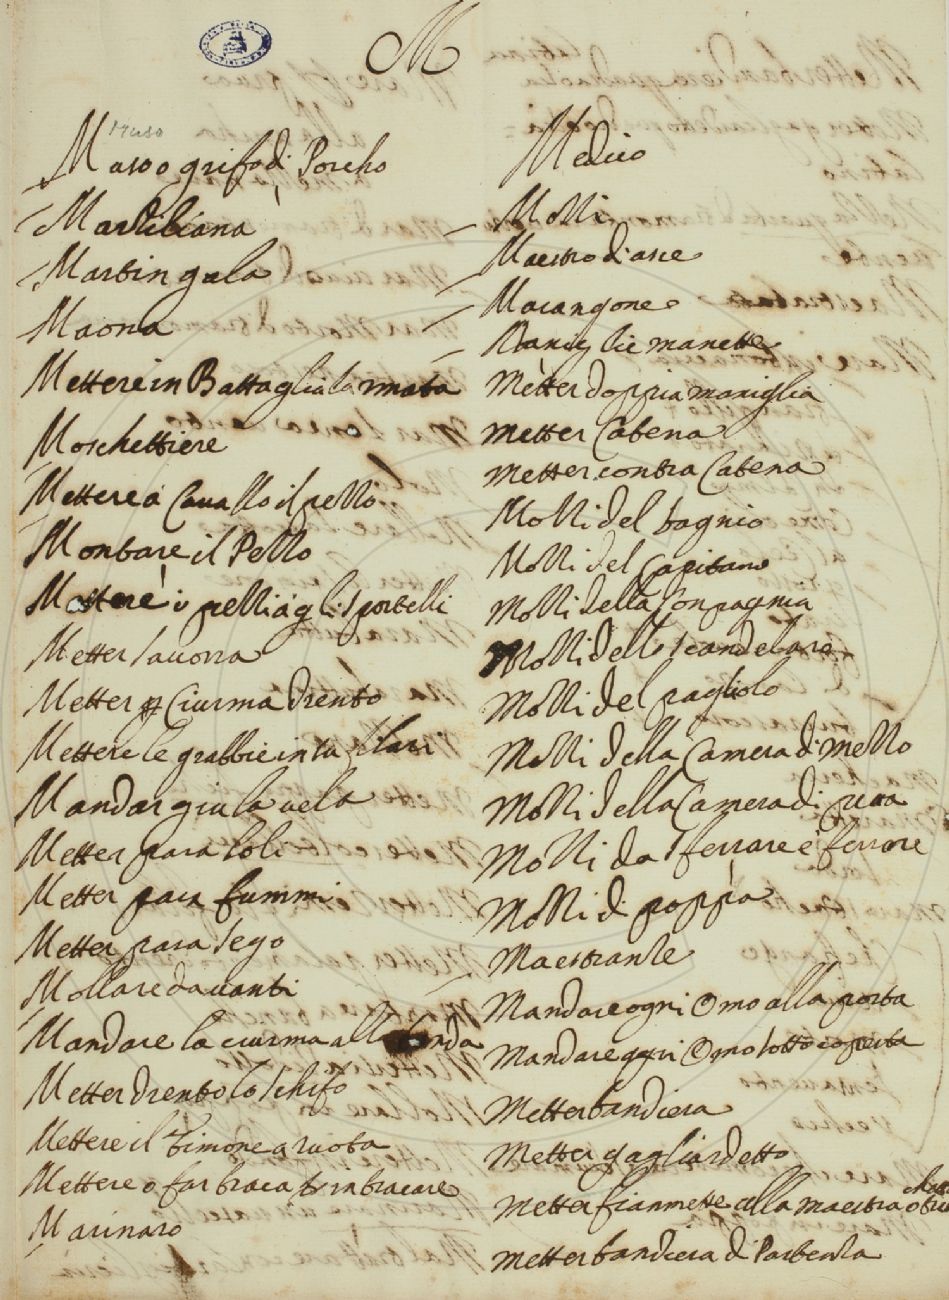 M
Muso
Muso o grifo di Porcho
Martiliana
Martingala
Maona
Mettere in Battaglia l'armata
Moschettiere
Mettere à Cauallo il pezzo
Montare il Pezzo
Mettere i pezzi à gli sportelli
Metter sauorra
Metter Ciurma drento
Mettere le grabbie in la
Mandar giu la uela
Metter para soli
Metter para fummi
Metter para sego
Mollare dauanti
Mandare la ciurma alla banda
Metter drento lo schifo
Mettere il timone a ruota
Mettere o far braca imbracare
Marinaro
Medico
Mozzi
Maestro d'asce
Marangone
Maniglie manette
Metter doppia maniglia
Metter Catena
Metter contra Catena
Mozzi del bagnio
Mozzi del Capitano
Mozzi della Conpagnia
Mozzi dello scandelaro
Mozzi del pagliolo
Mozzi della Camera di mezzo
Mozzi della Camera di prua
Mozzi da sferrare e ferrare
Mozzi di poppa
Maestranze
Mandare ogni Omo alla posta
Mandare ogni Omo sotto coperta
Metter bandiera
Metter gagliardetto
Metter fiammette alla maestra o tri
Metter bandiera di Partenza